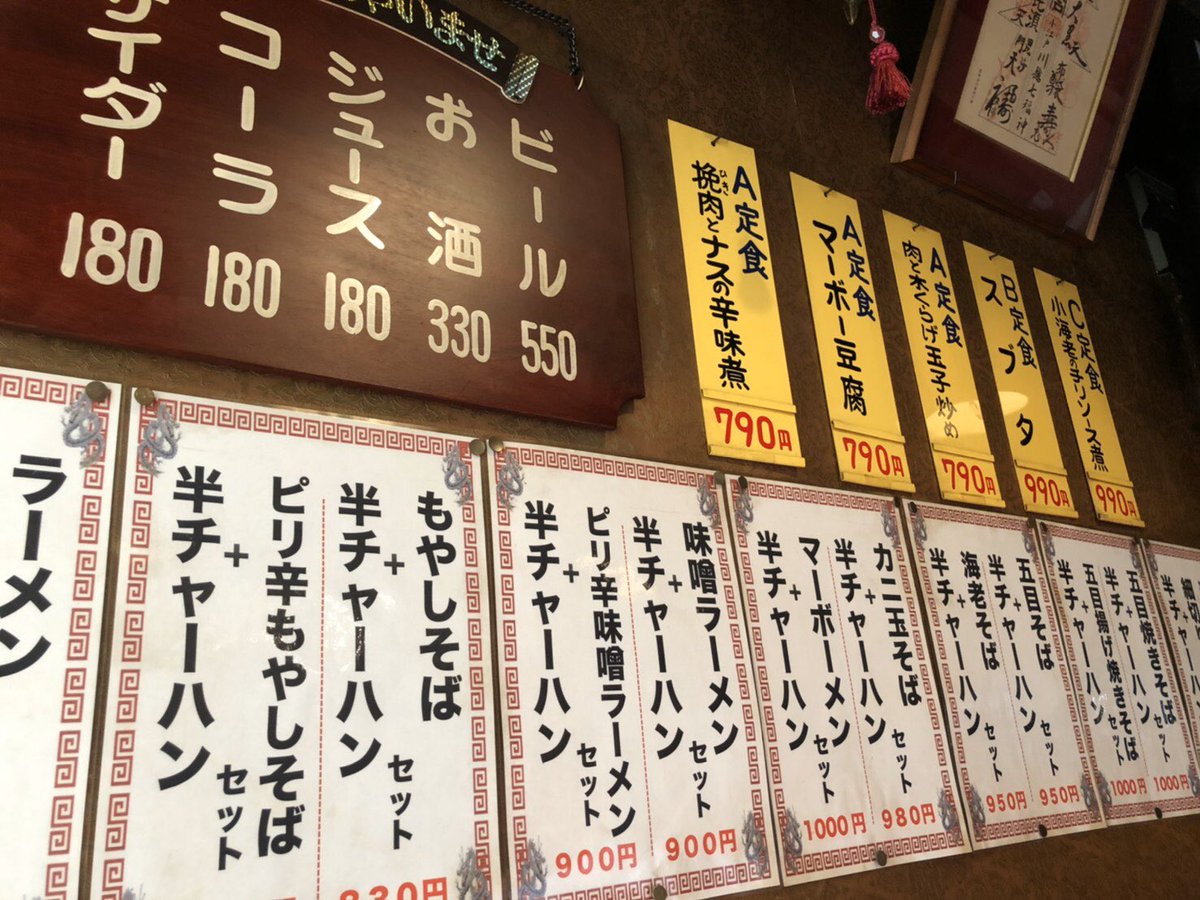 ビール 550
お酒 330
ジュース 180
コーラ 180
サイダー 180
A定食
挽肉とナスの辛味煮
ひきにく
790円
A定食
マーボー豆腐
790円
A定食
肉と木くらげ玉子炒め
790円
B定食
スブタ
990円
C定食
小海老のチリソース煮
990円
五目焼きそば
+
半チャーハン セット
1000円
五目揚げ焼きそば
+
半チャーハン セット
1000円
五目そば
+
半チャーハン セット
950円
海老そば
+
半チャーハン セット
950円
カニ玉そば
+
半チャーハン セット
980円
マーボーメン
+
半チャーハン セット
1000円
味噌ラーメン
+
半チャーハン セット
900円
ピリ辛味噌ラーメン
+
半チャーハン セット
900円
もやしそば
+
半チャーハン セット
830円
ピリ辛もやしそば
+
半チャーハン セット
ラーメン